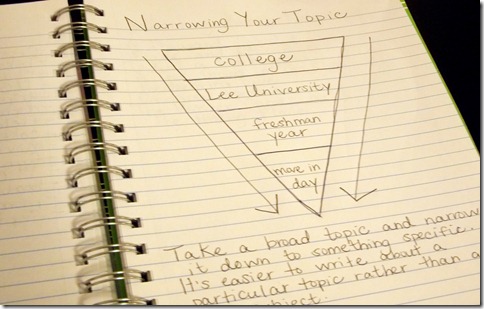 Narrowing Your Topic
college
Lee University
freshman
year
move in
day
Take a broad topic and narrow
it down to something specific.
It's easier to write about a
particular topic rather than a
subject.